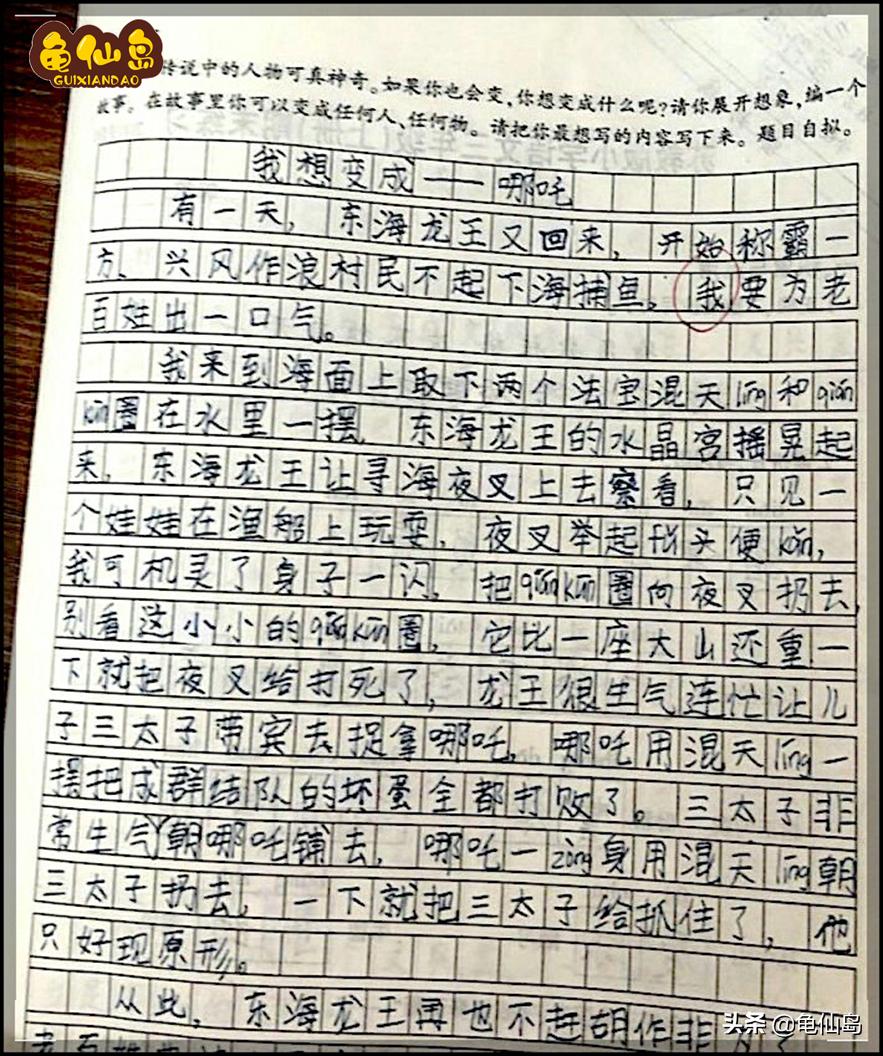 龟仙岛
GUIXIANDAO
传说中的人物可真神奇。如果你也会变,你想变成什么呢?请你展开想象,编一个
故事。在故事里你可以变成任何人、任何物。请把你最想写的内容写下来。题目自拟。
我想变成——哪吒
有一天,东海龙王又回来,开始称霸一
方、兴风作浪村民不起下海捕鱼。我要为老
百姓出一口气。
我来到海面上取下两个法宝混天líng和qián
kūn圈在水里一摆,东海龙王的水晶宫摇晃起
来,东海龙王让寻海夜叉上去察看,只见一
个娃娃在渔船上玩耍,夜叉举起fǔ头便kǎn,
我可机灵了身子一闪,把qiánkūn圈向夜叉扔去,
别看这小小的qiánkūn圈,它比一座大山还重一
下就把夜叉给打死了,龙王很生气连忙让儿
子三太子带宾去捉拿哪吒,哪吒用混天líng一
摆把成群结队的坏蛋全都打败了。三太子非
常生气朝哪吒铺去,哪吒一zòng身用混天líng朝
三太子扔去,一下就把三太子给抓住了,他
只好现原形。
从此,东海龙王再也不赶胡作非
头条 @龟仙岛